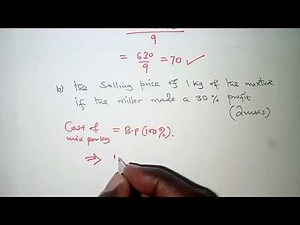 9
= 630/9 = 70 ✓
b) the Selling price of 1 kg of the mixture
if the miller made a 30% profit
(2mks)
Cost of mix per kg = B.P (100%).
⇒